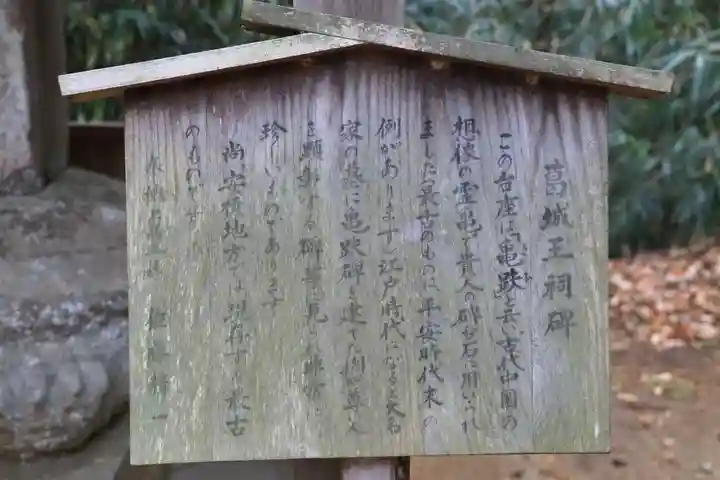 葛城王祠碑
この台座は「亀趺」と云い古代中国の
想像の霊亀で貴人の碑台石に用いられ
ました最古のものは、平安時代末の
例があります江戸時代になると大名
家の墓に亀趺碑を建てた例や尊人
を顕彰する碑等に見られ非常に
珍しいものであります
尚安積地方では現存する最古
のものです